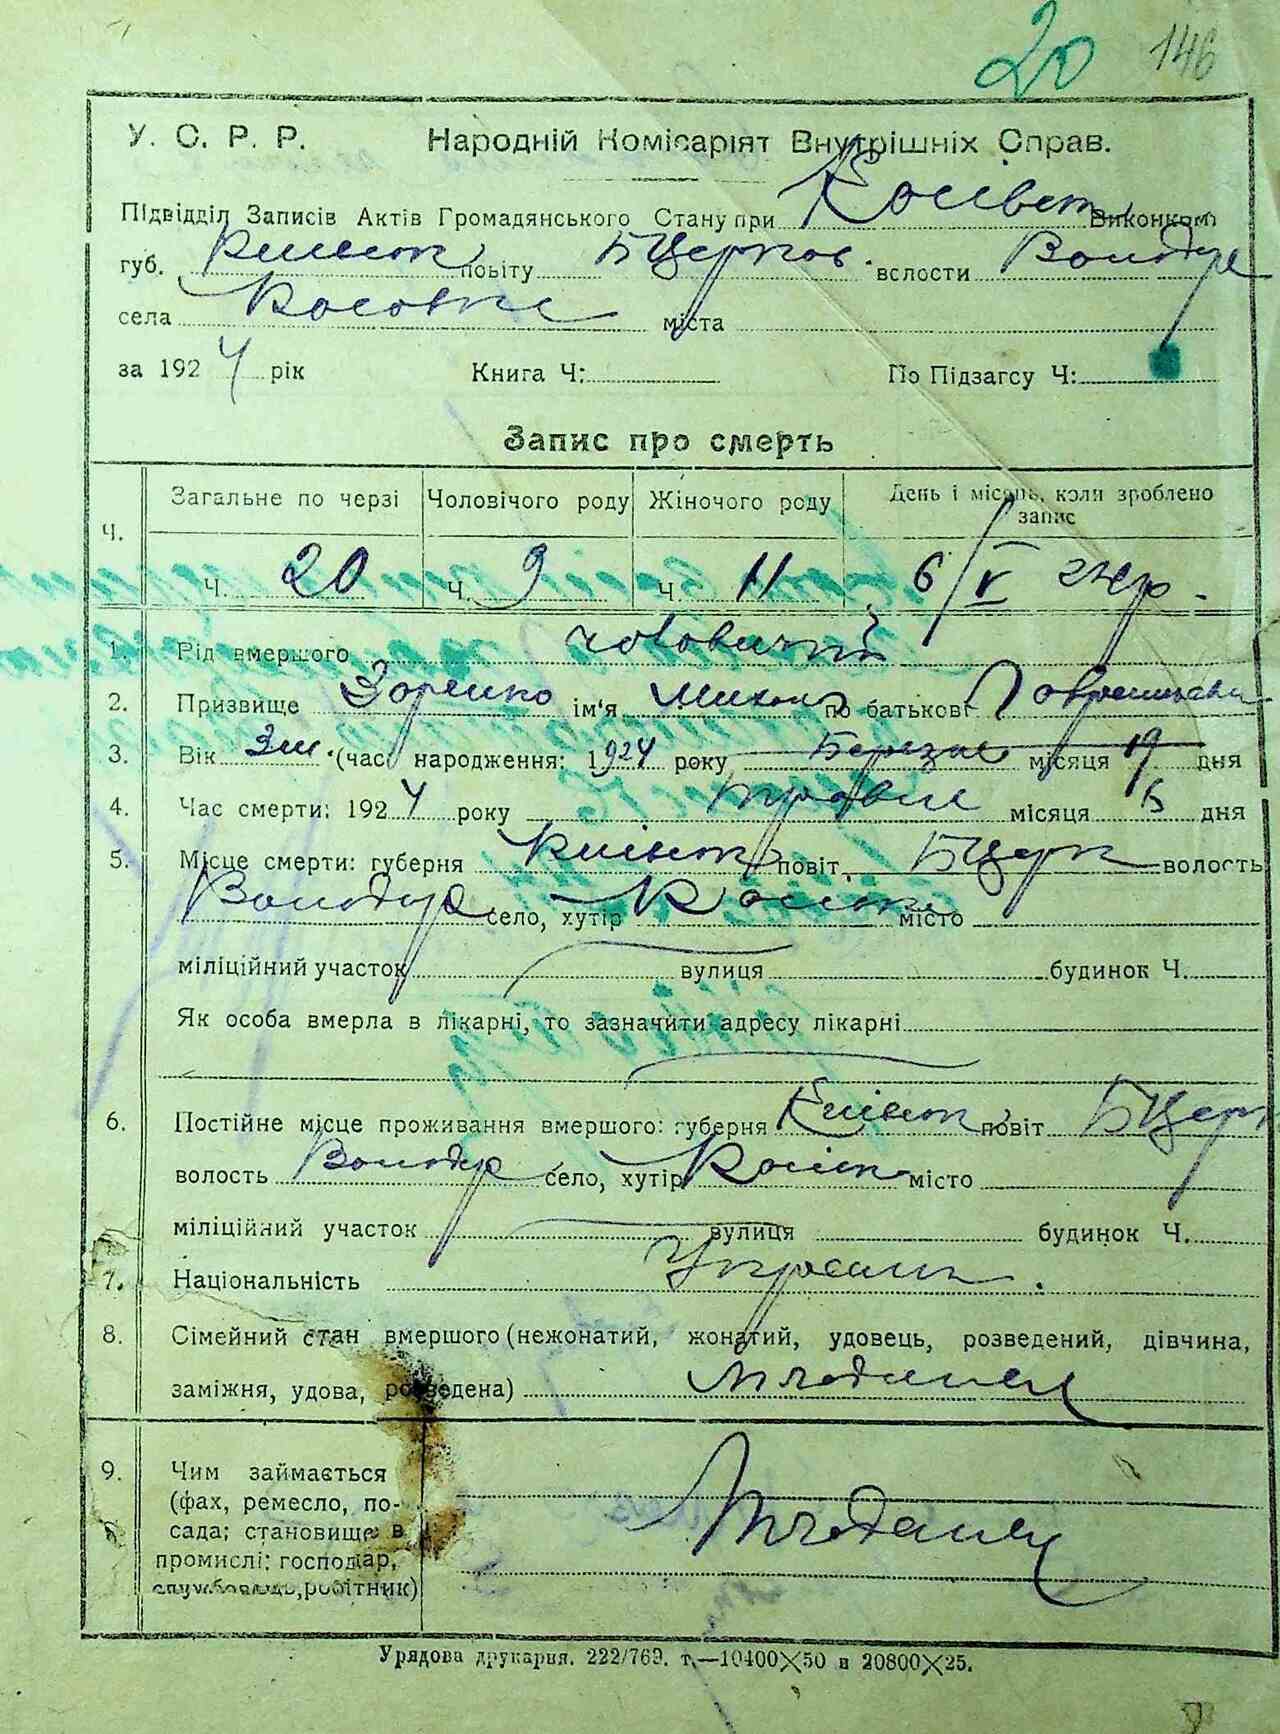 20 146
У. С. Р. Р. Народній Комісаріят Внутрішніх Справ.
Підвідділ Записів Актів Громадянського Стану при Косівст Виконком
губ. Київст повіту БЦерков. вслости Володар
села Косовке міста
за 1924 рік Книга Ч: По Підзагсу Ч:
Запис про смерть
Ч. Загальне по черзі Чоловічого роду Жіночого роду День і місяць, коли зроблено
запис
Ч. 20 Ч. 9 Ч. 11 6/V 24 р.
1. Рід вмершого чоловічий
2. Призвище Зоренко ім'я по батькові
3. Вік 2 м. (час народження: 1924 року Березня місяця 19 дня
4. Час смерти: 1924 року травня місяця 6 дня
5. Місце смерти: губерня Київст повіт, БЦерк волость
Володар село, хутір місто
міліційний участок вулиця будинок Ч.
Як особа вмерла в лікарні, то зазначити адресу лікарні
6. Постійне місце проживання вмершого: губерня Київст повіт БЦерк
волость Володар село, хутір місто
міліційний участок вулиця будинок Ч.
7. Національність Украєнин.
8. Сімейний стан вмершого (нежонатий, жонатий, удовець, розведений, дівчина,
заміжня, удова, розведена) младенец
9. Чим займається
(фах, ремесло, по-
сада; становище в
промислі: господар,
службовець, робітник)
Младенец
Урядова друкарня. 222/769. т.—10400X50 и 20800X25.